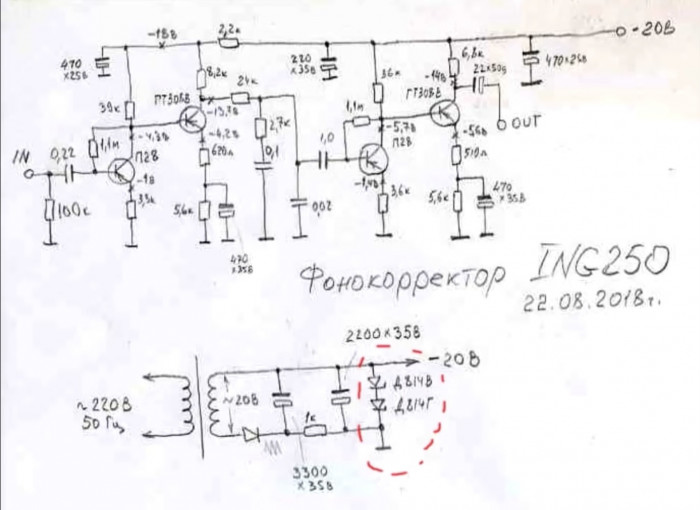 -18В
2,2к
-20В
470
×25В
220
×35В
6,8к
470×25В
8,2к
36к
-14В
22×50В
24к
39к
ГТ308В
-13,7В
1,1м
ГТ308В
OUT
2,7к
-4,3В
-4,2В
-5,7В
1,0
IN
0,22
1,1м
П28
620л
0,1
П28
510л
-1В
-1,4В
100к
3,3к
5,6к
0,02
3,6к
5,6к
470
×35В
470
×35В
Фонокорректор ING250
22.08.2018г.
2200×35В
-20В
~220В
50 Гц
~20В
Д814В
Д814Г
1к
3300
×35В